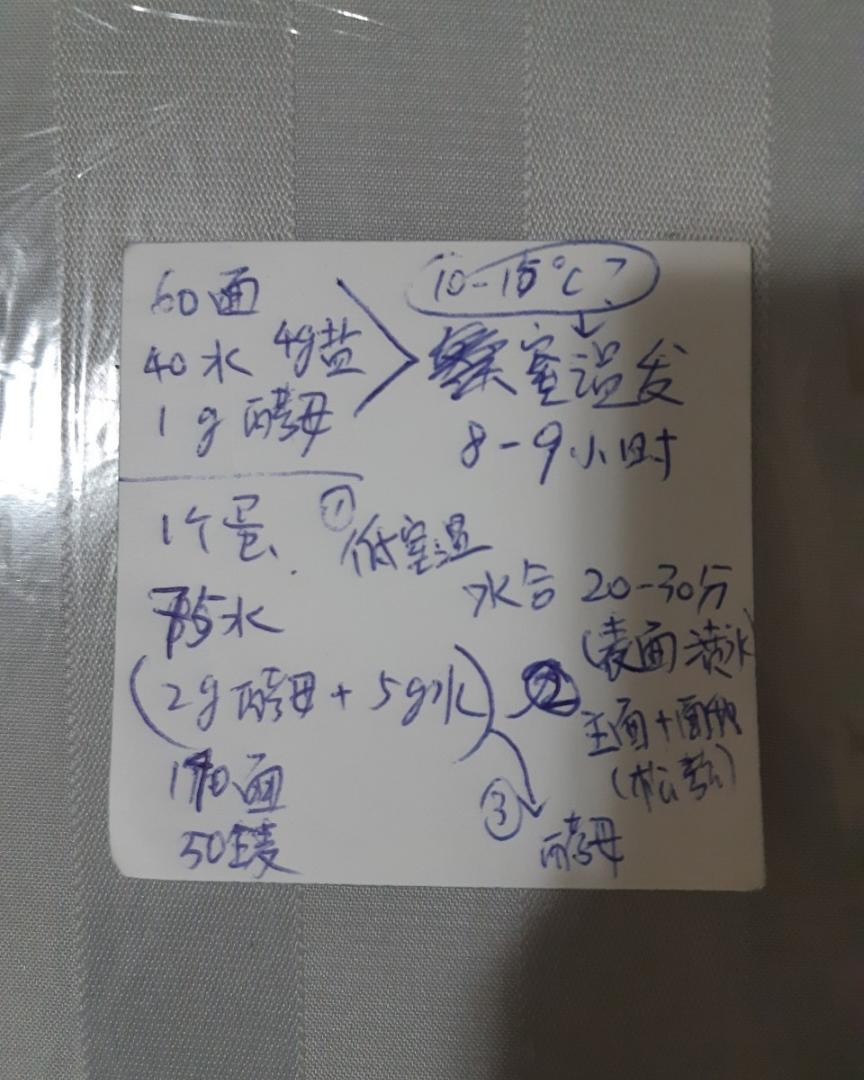 60面
40水 4g盐
1g 酵母
10-15°C?
室温发
8-9小时
1个蛋
①
低室温
75水
水合 20-30分
(表面
(2g酵母 + 5g水)
②
主面+面
170面
③
50全麦
酵母